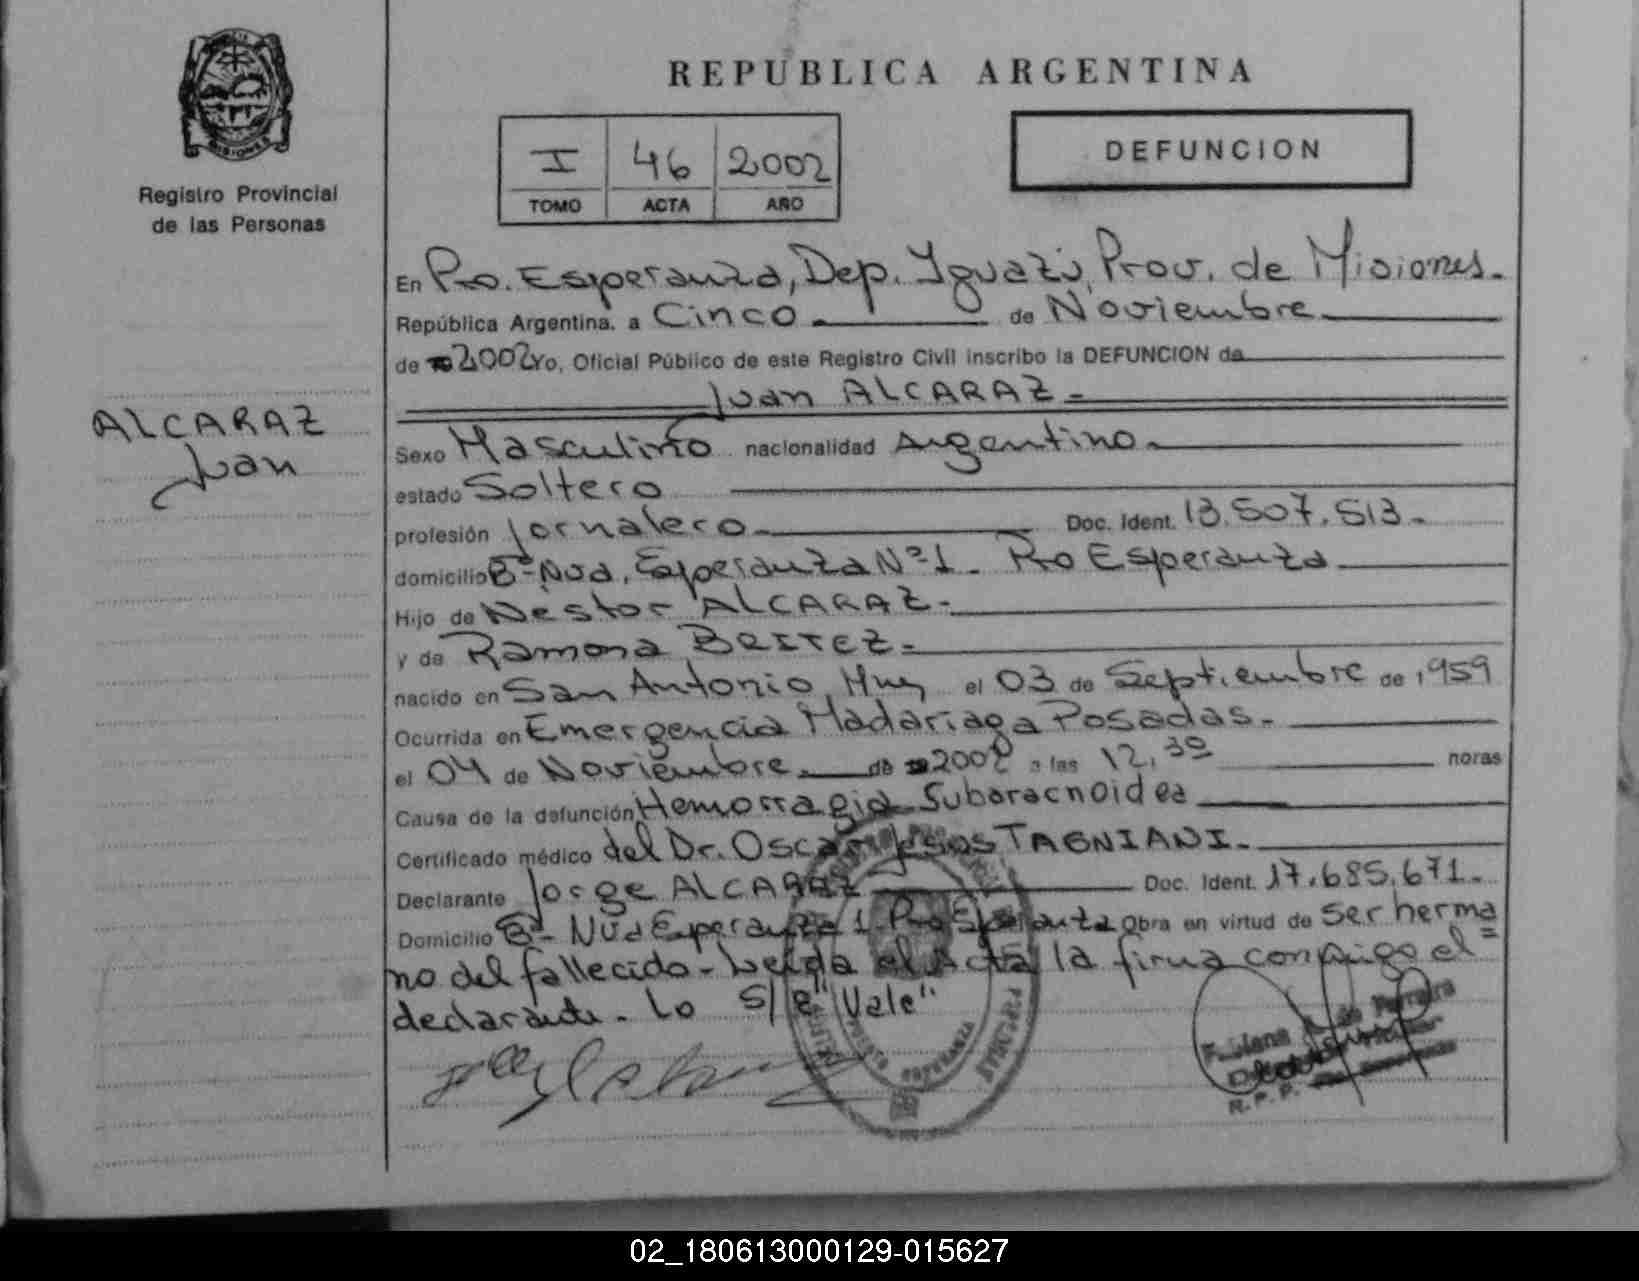 REPUBLICA ARGENTINA
I 46 2002
TOMO ACTA AÑO
DEFUNCION
MISIONES
Registro Provincial
de las Personas
ALCARAZ
Juan
En Pto. Esperanza, Dep. Iguazú, Prov. de Misiones.
República Argentina. a Cinco de Noviembre
de 2002 Yo, Oficial Público de este Registro Civil inscribo la DEFUNCION de
Juan ALCARAZ
Sexo Masculino nacionalidad Argentino
estado Soltero
profesión Jornalero Doc. Ident. 13.507.513.
domicilio Bº Nva. Esperanza Nº 1. Pto Esperanza
Hijo de Nestor ALCARAZ
y de Ramona BEITEZ
nacido en San Antonio, Mnes el 03 de Septiembre de 1959
Ocurrida en Emergencia Madariaga Posadas.
el 04 de Noviembre de 2002 a las 12,30 horas
Causa de la defunción Hemorragia Subaracnoidea
Certificado médico del Dr. Oscar Jesus TAGNIANI.
Declarante Jorge ALCARAZ Doc. Ident. 17.685.671.
Domicilio Bº Nva Esperanza 1. Pto Esperanza Obra en virtud de ser herma
no del fallecido. Leída el Acta la firma conmigo el =
declarante. Lo S/R "Vale"
PUERTO ESPERANZA
de Ferreira
R. P. P.
02_180613000129-015627